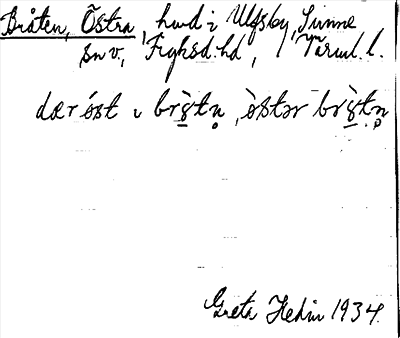 Bråten, Östra, hmd i Ulfsby, Sunne
sn v., Fryksd. hd, Värml. l.
dær óst i brs̀tn̥, òstər brs̀tn̥
Greta Hedin 1934.